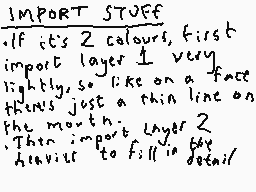 IMPORT STUFF
• If it's 2 colours, first
import layer 1 very
lightly, so like on a face
there's just a thin line on
the mouth.
• Then import layer 2
heavier to fill in the
detail